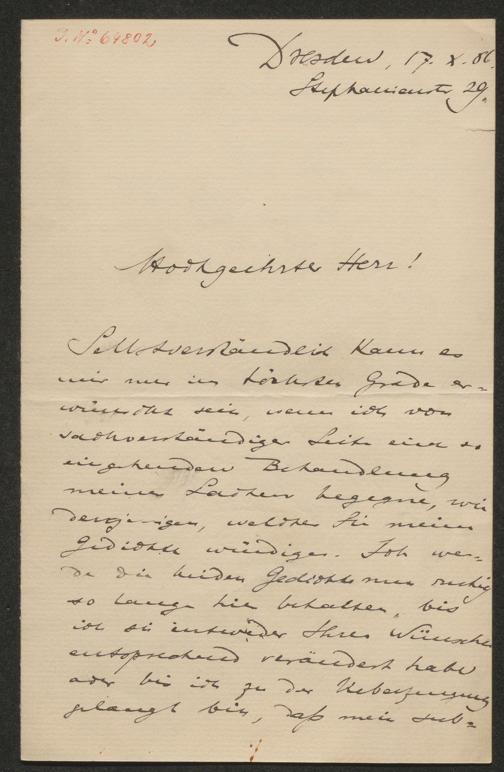 J. No: 64802
Dresden, 17. X. 86.
Stephanienstr. 29.
Hochgeehrter Herr!
Selbstverständlich kann es
mir nur im höchsten Grade er-
wünscht sein, wenn ich von
sachverständiger Seite einer so
eingehenden Behandlung
meiner Sachen begegne, wie
derjenigen, welcher Sie meine
Gedichte würdigen. Ich wer-
de die beiden Gedichte nun ruhig
so lange hier behalten, bis
ich sie entweder Ihren Wünschen
entsprechend verändert habe
oder bis ich zu der Ueberzeugung
gelangt bin, daß mein sub-